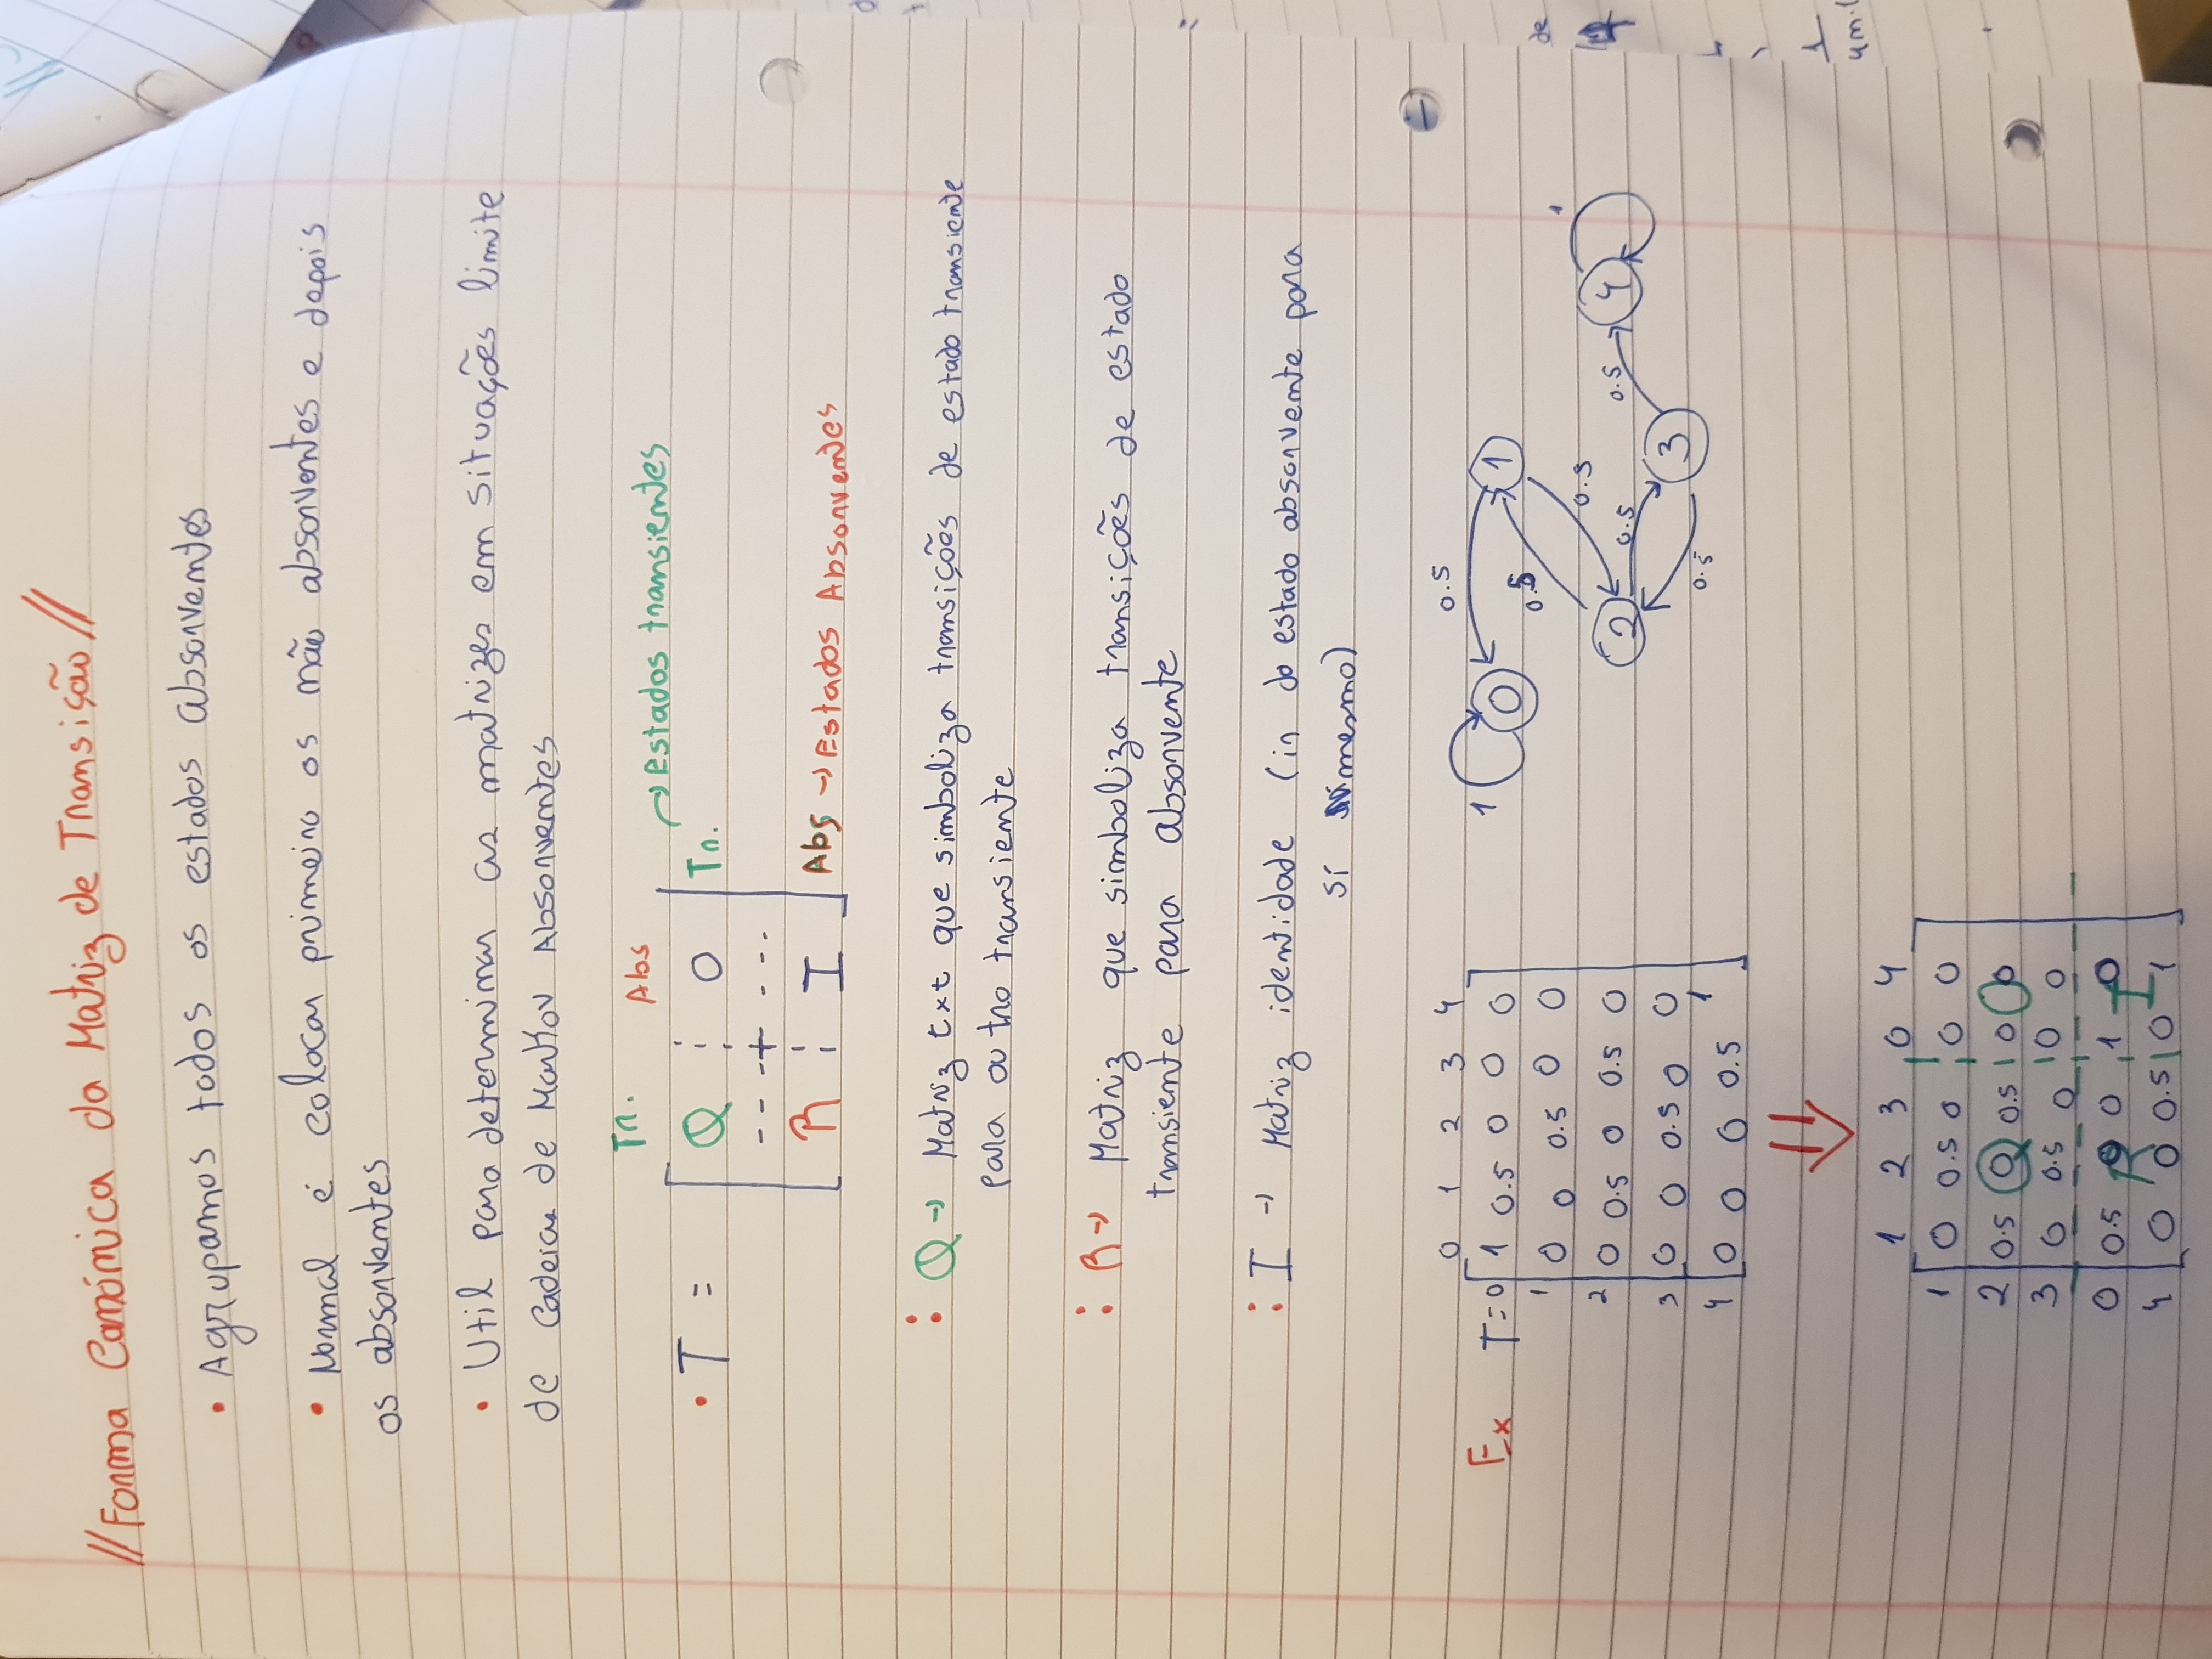 //Forma Canónica da Matriz de Transição//
• Agrupamos todos os estados absorventes
• Normal é colocar primeiro os não absorventes e depois
os absorventes
• Util para determinar as matrizes em situações limite
de Cadeias de Markov Absorventes
Tr. Abs
→ Estados transientes
• T = [ Q ¦ O ] Tr.
- - - + - - -
[ R ¦ I ] Abs → Estados Absorventes
: Q → Matriz txt que simboliza transições de estado transiente
para outro transiente
: R → Matriz que simboliza transições de estado
transiente para absorvente
: I → Matriz identidade (ir do estado absorvente para
si mesmo)
0 1 2 3 4
Ex T= 0 1 0.5 0 0 0
1 0 0 0.5 0 0
2 0 0.5 0 0.5 0
3 0 0 0.5 0 0
4 0 0 0 0.5 1
0.5
1 0 1
0.5
0.5
1
2 0.5 0.5 4
3
0.5
1 2 3 0 4
1 0 0.5 0 0 0
2 0.5 0 0.5 0 0
Q O
3 0 0.5 0 0 0
0 0.5 0 0 1 0
R I
4 0 0 0.5 0 1
de
1